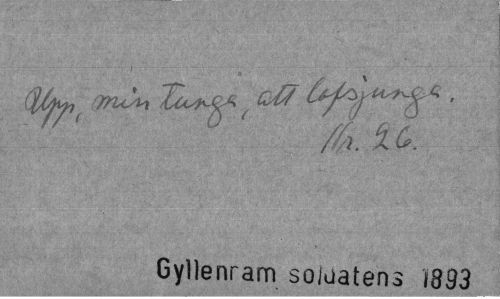 Upp, min tunga, att lofsjunga.
Nr. 26.
Gyllenram soldatens 1893